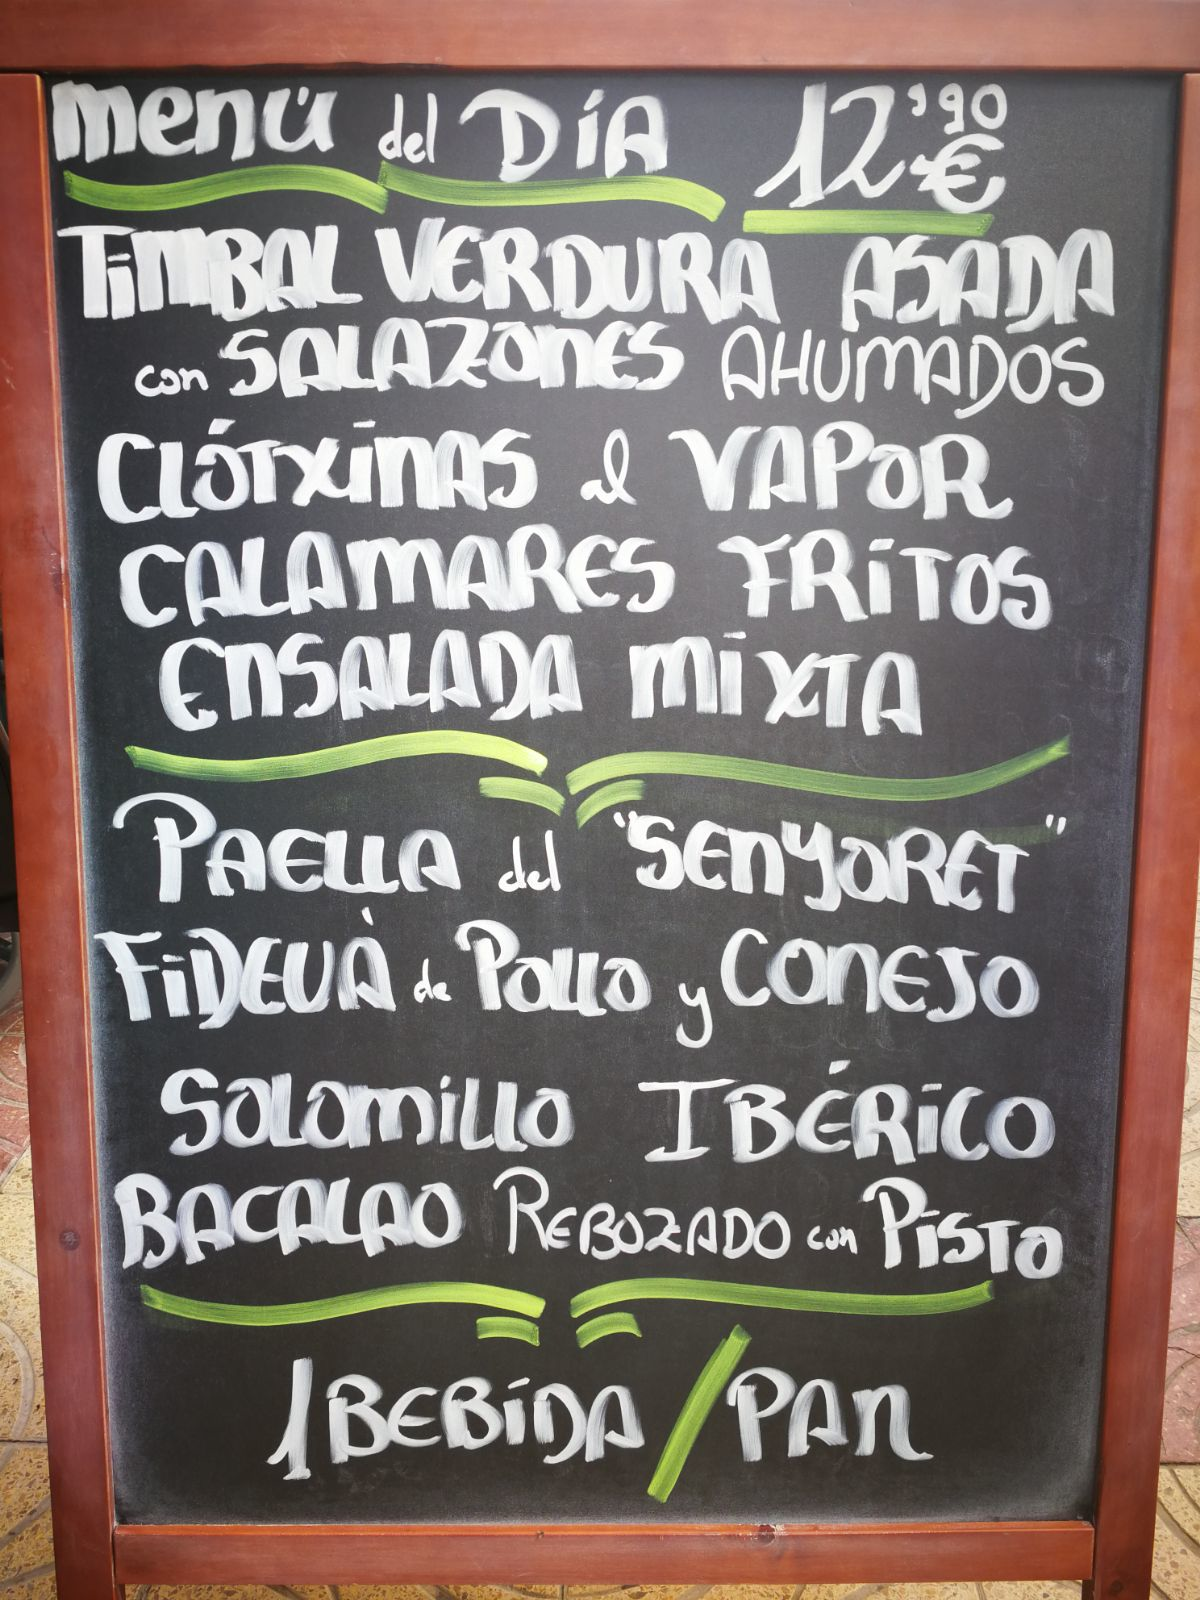 menú del DíA 12'90 €
TiMBAL VERDURA ASADA
con SALAZONES AHUMADOS
CLÓTXINAS al VAPOR
CALAMARES FRiTOS
ENSALADA MiXTA
PAELLA del "SENYORET"
FiDEUÀ de POLLO y CONEJO
SOLOMiLLO IBÉRiCO
BACALAO REBOZADO con PiSTO
1 BEBiDA / PAN